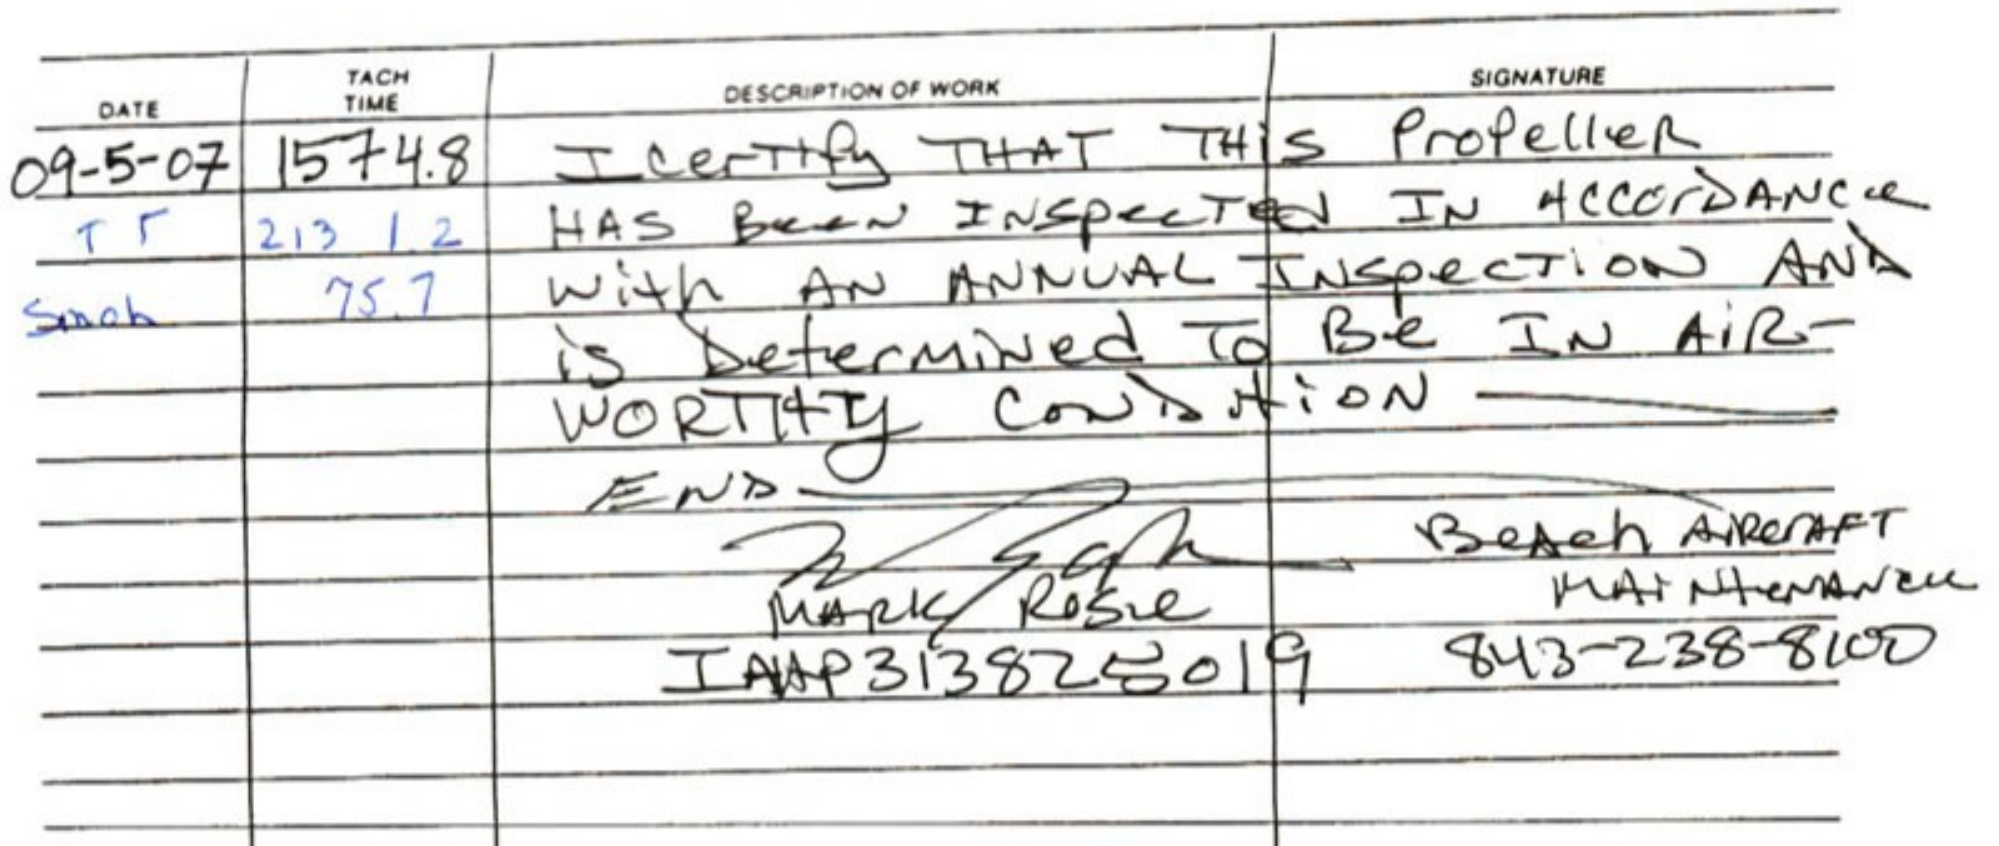 DATE TACH TIME DESCRIPTION OF WORK SIGNATURE
09-5-07 1574.8 I certify THAT THis Propeller
TT 2131.2 HAS Been INspected IN Accordance
Smoh 75.7 With AN ANNUAL INspection AND
is Determined To Be IN AiR-
WORTHY CONDition
END
MARK Rosie Beach AIRCRAFT
MAINtenance
IAAP313825019 843-238-8100